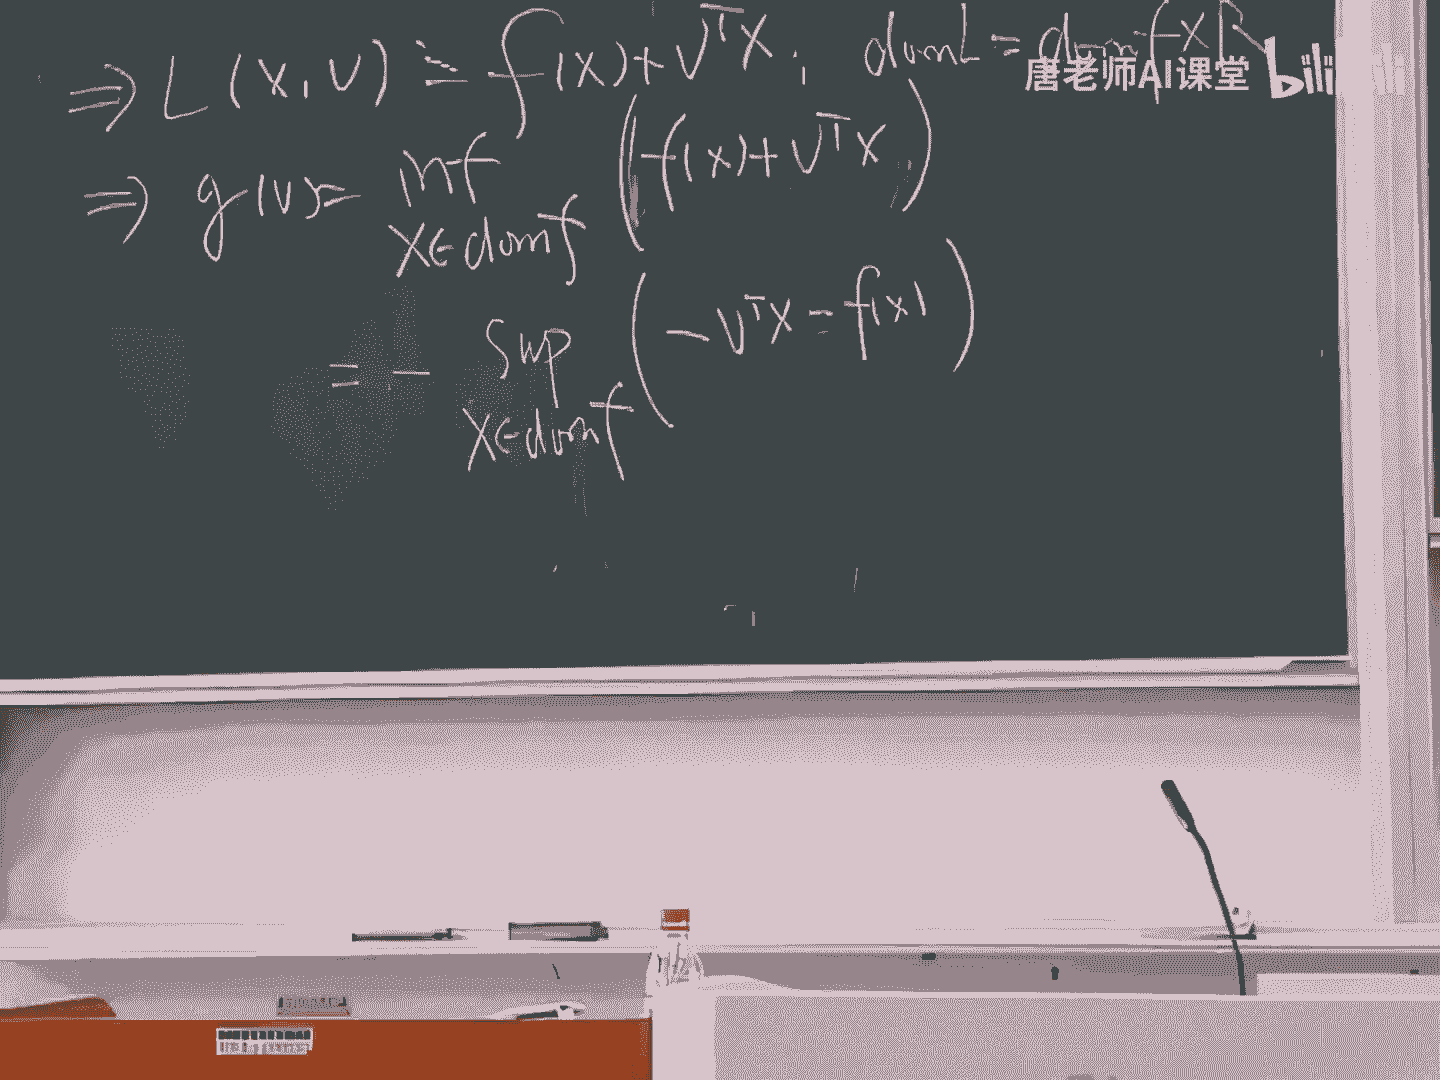 ⇒ L(x, ν) = f(x) + ν^T x, dom L = dom f × R
唐老师AI课堂 bili
⇒ g(ν) = inf x∈dom f (f(x) + ν^T x)
= - sup x∈dom f (-ν^T x - f(x))